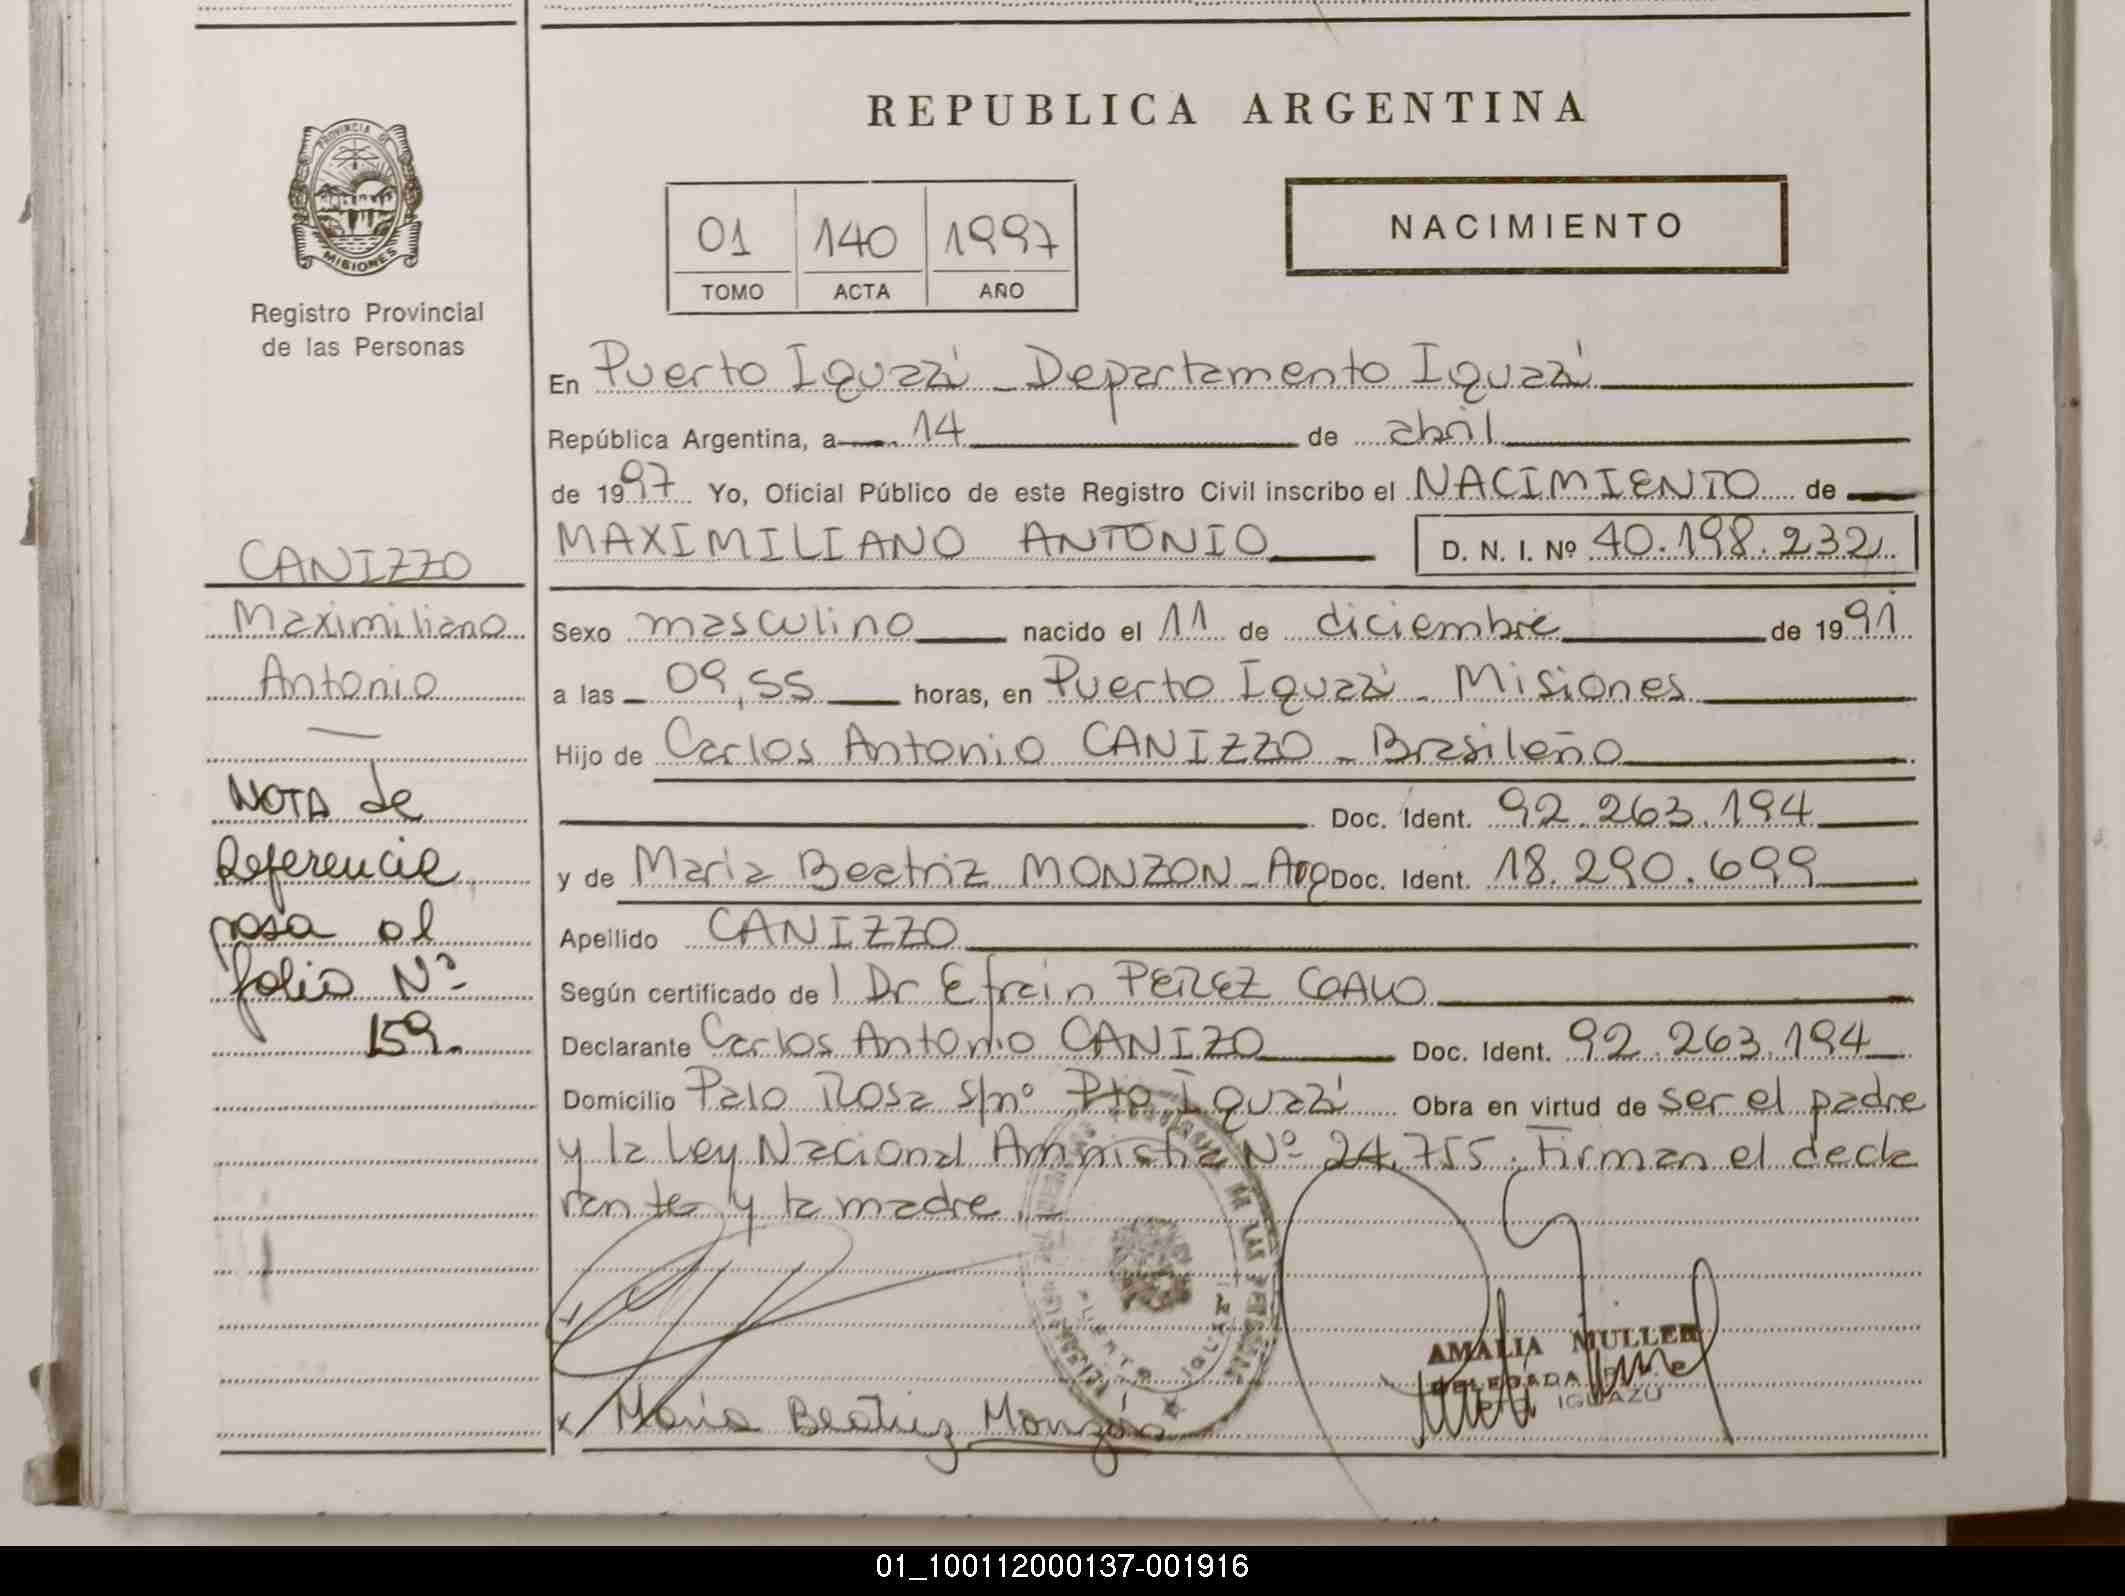 REPUBLICA ARGENTINA
PROVINCIA DE
MISIONES
Registro Provincial
de las Personas
01 140 1997
TOMO ACTA AÑO
NACIMIENTO
En Puerto Iguazú - Departamento Iguazú
República Argentina, a 14 de abril
de 1997 Yo, Oficial Público de este Registro Civil inscribo el NACIMIENTO de
MAXIMILIANO ANTONIO D. N. I. Nº 40.198.232
Sexo masculino nacido el 11 de diciembre de 1991
a las 09,55 horas, en Puerto Iguazú - Misiones
Hijo de Carlos Antonio CANIZZO - Brasileño
Doc. Ident. 92.263.194
y de María Beatriz MONZON - Arg Doc. Ident. 18.290.699
Apellido CANIZZO
Según certificado de l Dr Efrain PEREZ
Declarante Carlos Antonio CANIZO Doc. Ident. 92.263.194
Domicilio Palo Rosa s/nº Pto Iguazú Obra en virtud de ser el padre
y la Ley Nacional Amnistia Nº 24.755. Firman el decla
rante y la madre.
CANIZZO
Maximiliano
Antonio
NOTA de
Referencia
pasa al
folio Nº
159.
AMALIA MULLER
DELEGADA
IGUAZU
x María Beatriz Monzón
01_100112000137-001916